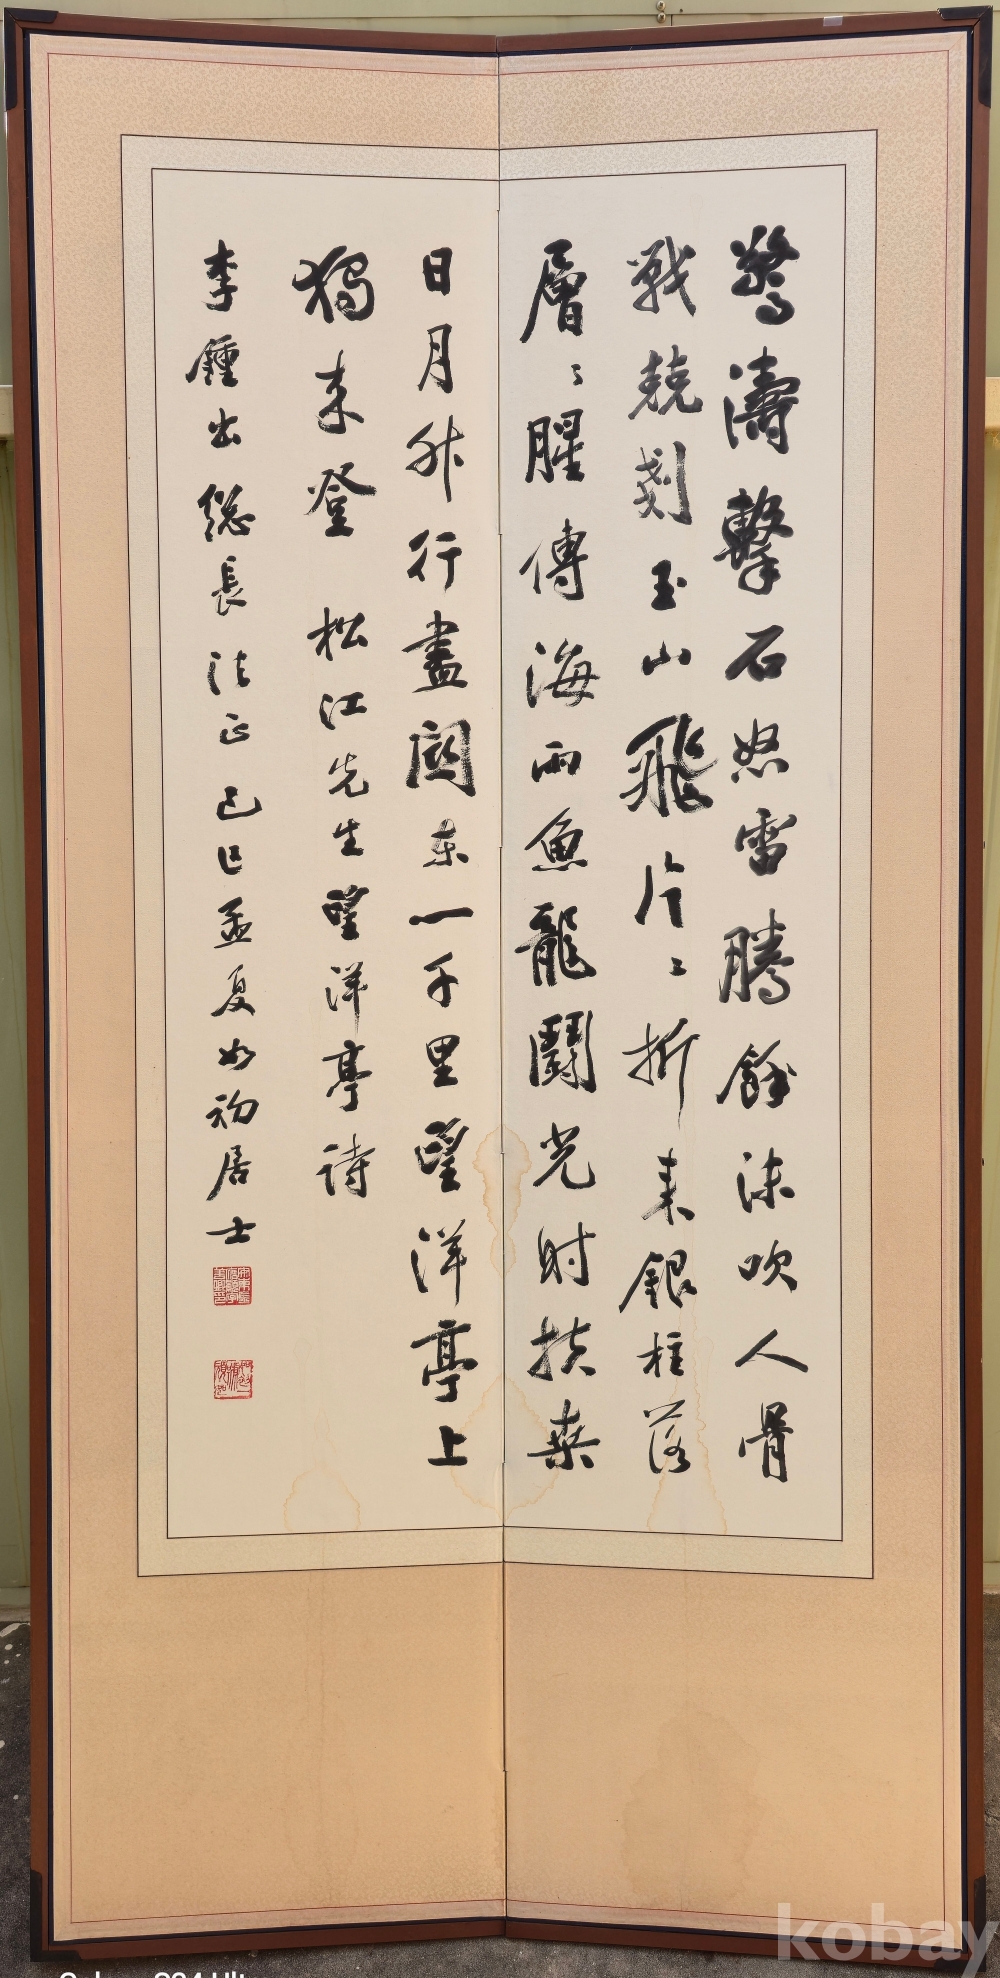 驚濤擊石怒雷騰餘沫吹人骨
戰兢剗玉山飛片〻折來銀柱落
層〻腥傳海雨魚龍鬪光射扶桑
日月升行盡關東一千里望洋亭上
獨來登 松江先生望洋亭詩
李鍾出總長法正 己巳孟夏如初居士
kobay